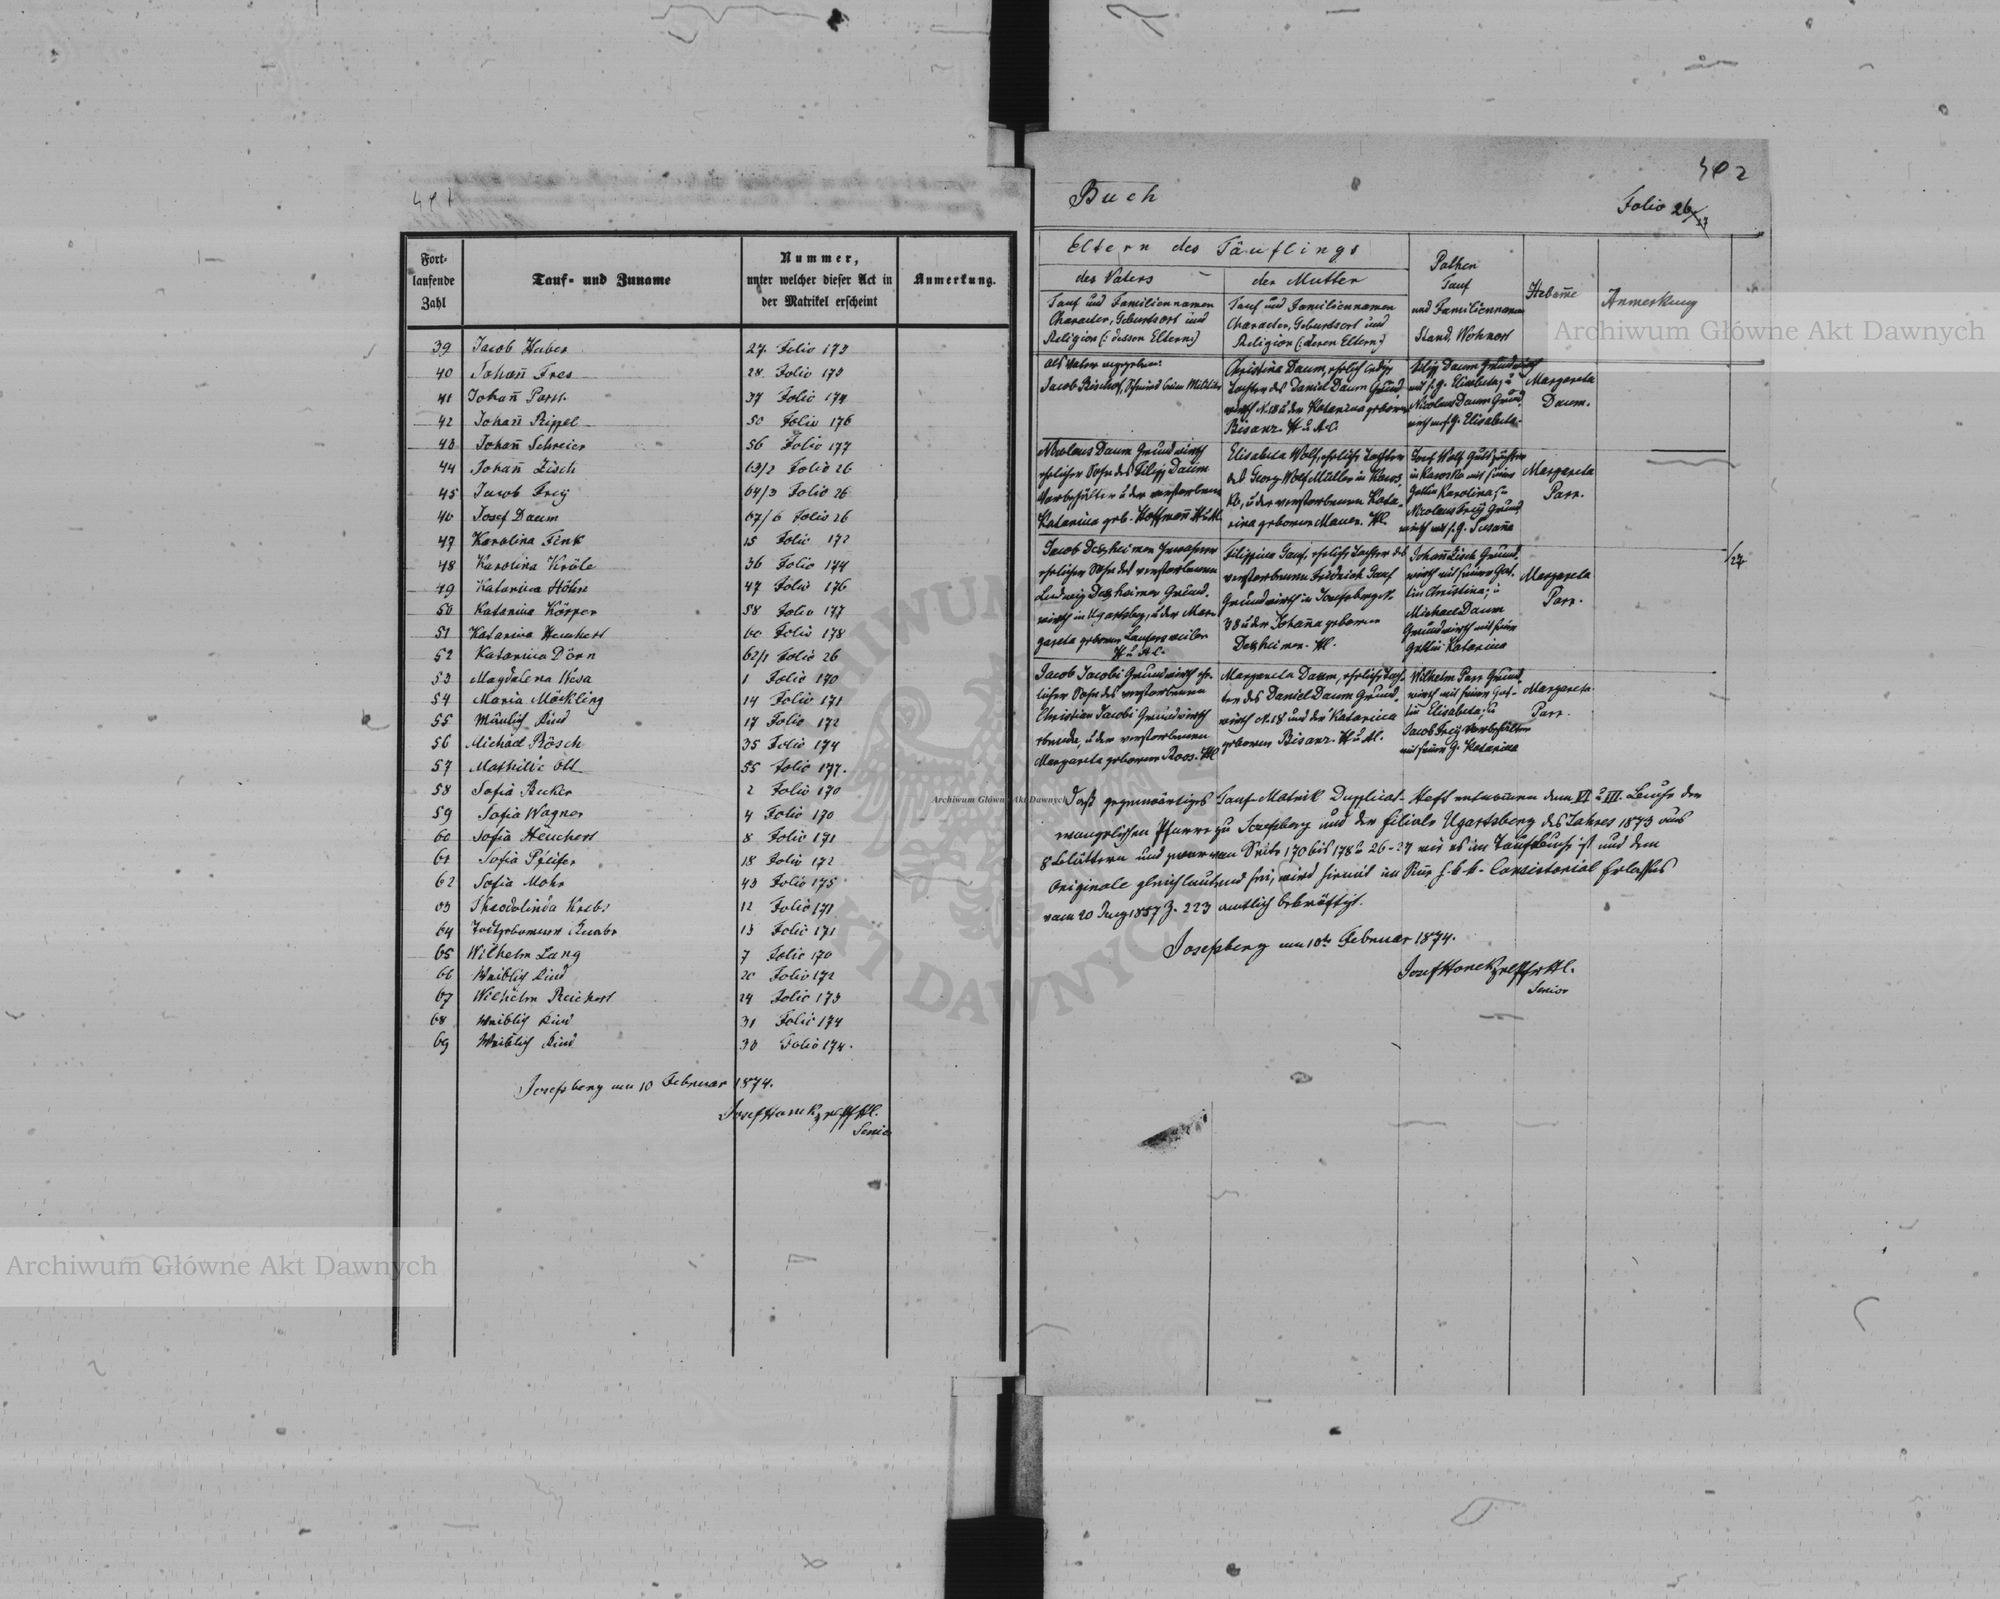 491
Fort-
laufende
Zahl
Tauf- und Zuname
Nummer,
unter welcher dieser Act in
der Matrikel erscheint
Anmerkung.
39 Jacob Huber 27. Folio 173
40 Johann̄ Fres 28. Folio 173
41 Johan̄ Parr. 37 Folio 174
42 Johan̄ Rippel 50 Folio 176
43 Johan̄ Schreier 56 Folio 177
44 Johan̄ Zisch 63/2 Folio 26
45 Jacob Frey 64/3 Folio 26
46 Josef Daum 67/6 Folio 26
47 Karolina Fink 15 Folio 172
48 Karolina Kröle 36 Folio 174
49 Katarina Höhn 47 Folio 176
50 Katarina Körper 58 Folio 177
51 Katarina Heuchert 60 Folio 178
52 Katarina Dörn 62/1 Folio 26
53 Magdalena Wesa 1 Folio 170
54 Maria Möckling 14 Folio 171
55 Mänlich Kind 17 Folio 172
56 Michael Rösch 35 Folio 174
57 Mathilde Ott 55 Folio 177.
58 Sofia Becker 2 Folio 170
59 Sofia Wagner 4 Folio 170
60 Sofia Heuchert 8 Folio 171
61 Sofia Pfeifer 18 Folio 172
62 Sofia Mohr 43 Folio 175
63 Theodolinda Krebs 12 Folio 171
64 Todtgeborener Knabe 13 Folio 171
65 Wilhelm Lang 7 Folio 170
66 Weiblich Kind 20 Folio 172
67 Wilhelm Reichert 24 Folio 173
68 Weiblich Kind 31 Folio 174
69 Weiblich Kind 30 Folio 174.
Josefsberg am 10 Februar 1874.
Josef Honek
Senior
492
Buch
Folio 26/27
Eltern des Täuflings
des Vaters
Tauf und Familiennamen
Character, Geburtsort und
Religion (: dessen Eltern:)
der Mutter
Tauf und Familiennamen
Character, Geburtsort und
Religion (: deren Eltern:)
Pathen
Tauf
und Familiennamen
Stand, Wohnort
Hebam̄e
Anmerkung
Als Vater angegeben:
Jacob Bischof, Schmied beim Militär
Christina Daum, ehelich ledige
Tochter des Daniel Daum Grund
wirth N. 18 u der Katarina geboren
Bisanz. H u A.C.
Filipp Daum Grundwirth
mit s. G. Elisabeta; u
Nicolaus Daum Grund
wirth mit s. G. Elisabeta.
Margareta
Daum.
Nicolaus Daum Grundwirth
ehelicher Sohn des Filipp Daum
Vorbehälter u der verstorbenen
Katarina geb. Hoffman̄
Elisabeta Wolf, eheliche Tochter
des Georg Wolf Müller in
u der verstorbenen Kata
rina geborene Mauer. Hl.
Josef Wolf
in mit seiner
Gattin Karolina; u
Nicolaus Frey Grund
wirth mit s. G. Susan̄a
Margareta
Parr.
Jacob Dezheimer Inwohner
ehelicher Sohn des verstorbenen
Ludwig Dezheimer Grund
wirth in Ugartsberg, u der Mar
gareta geborene Laufersweiler
H u A.C.
Filippina Gauf, eheliche Tochter des
verstorbenen Fridrich Gauf
Grundwirth in Josefsberg N.
38 u der Johan̄a geborene
Dezheimer. Hl.
Johan̄ Zisch Grund
wirth mit seiner Gat
tin Christina; u
Michael Daum
Grundwirth mit seiner
Gattin Katarina
Margareta
Parr.
/27
Jacob Jacobi Grundwirth ehe
licher Sohn des verstorbenen
Christian Jacobi Grundwirth
u der verstorbenen
Margareta geborene Roos. Hl
Margareta Daum, eheliche Toch
ter des Daniel Daum Grund
wirth N. 18 und der Katarina
geborene Bisanz. H u Al.
Wilhelm Parr Grund
wirth mit seiner Gat
tin Elisabeta; u
Jacob Frey Vorbehälter
mit seiner G. Katarina
Margareta
Parr.
Daß gegenwärtiges Tauf-Matrik Duplicat-Heft entnom̄en dem VI u III. Buche der
evangelischen Pfarre zu Josefsberg und der Filiale Ugartsberg des Jahres 1873 aus
8 Blättern und zwar von Seite 170 bis 178 u 26-27 wie es im Taufbuche ist und dem
Originale gleichlautend sei, wird hiemit im Sin̄e h. k. k. Consistorial Erlasses
vom 20 Juny 1857 Z. 223 amtlich bekräftigt.
Josefsberg am 10te Februar 1874.
Josef Honek
Senior
Archiwum Główne Akt Dawnych
Archiwum Główne Akt Dawnych
Archiwum Główne Akt Dawnych